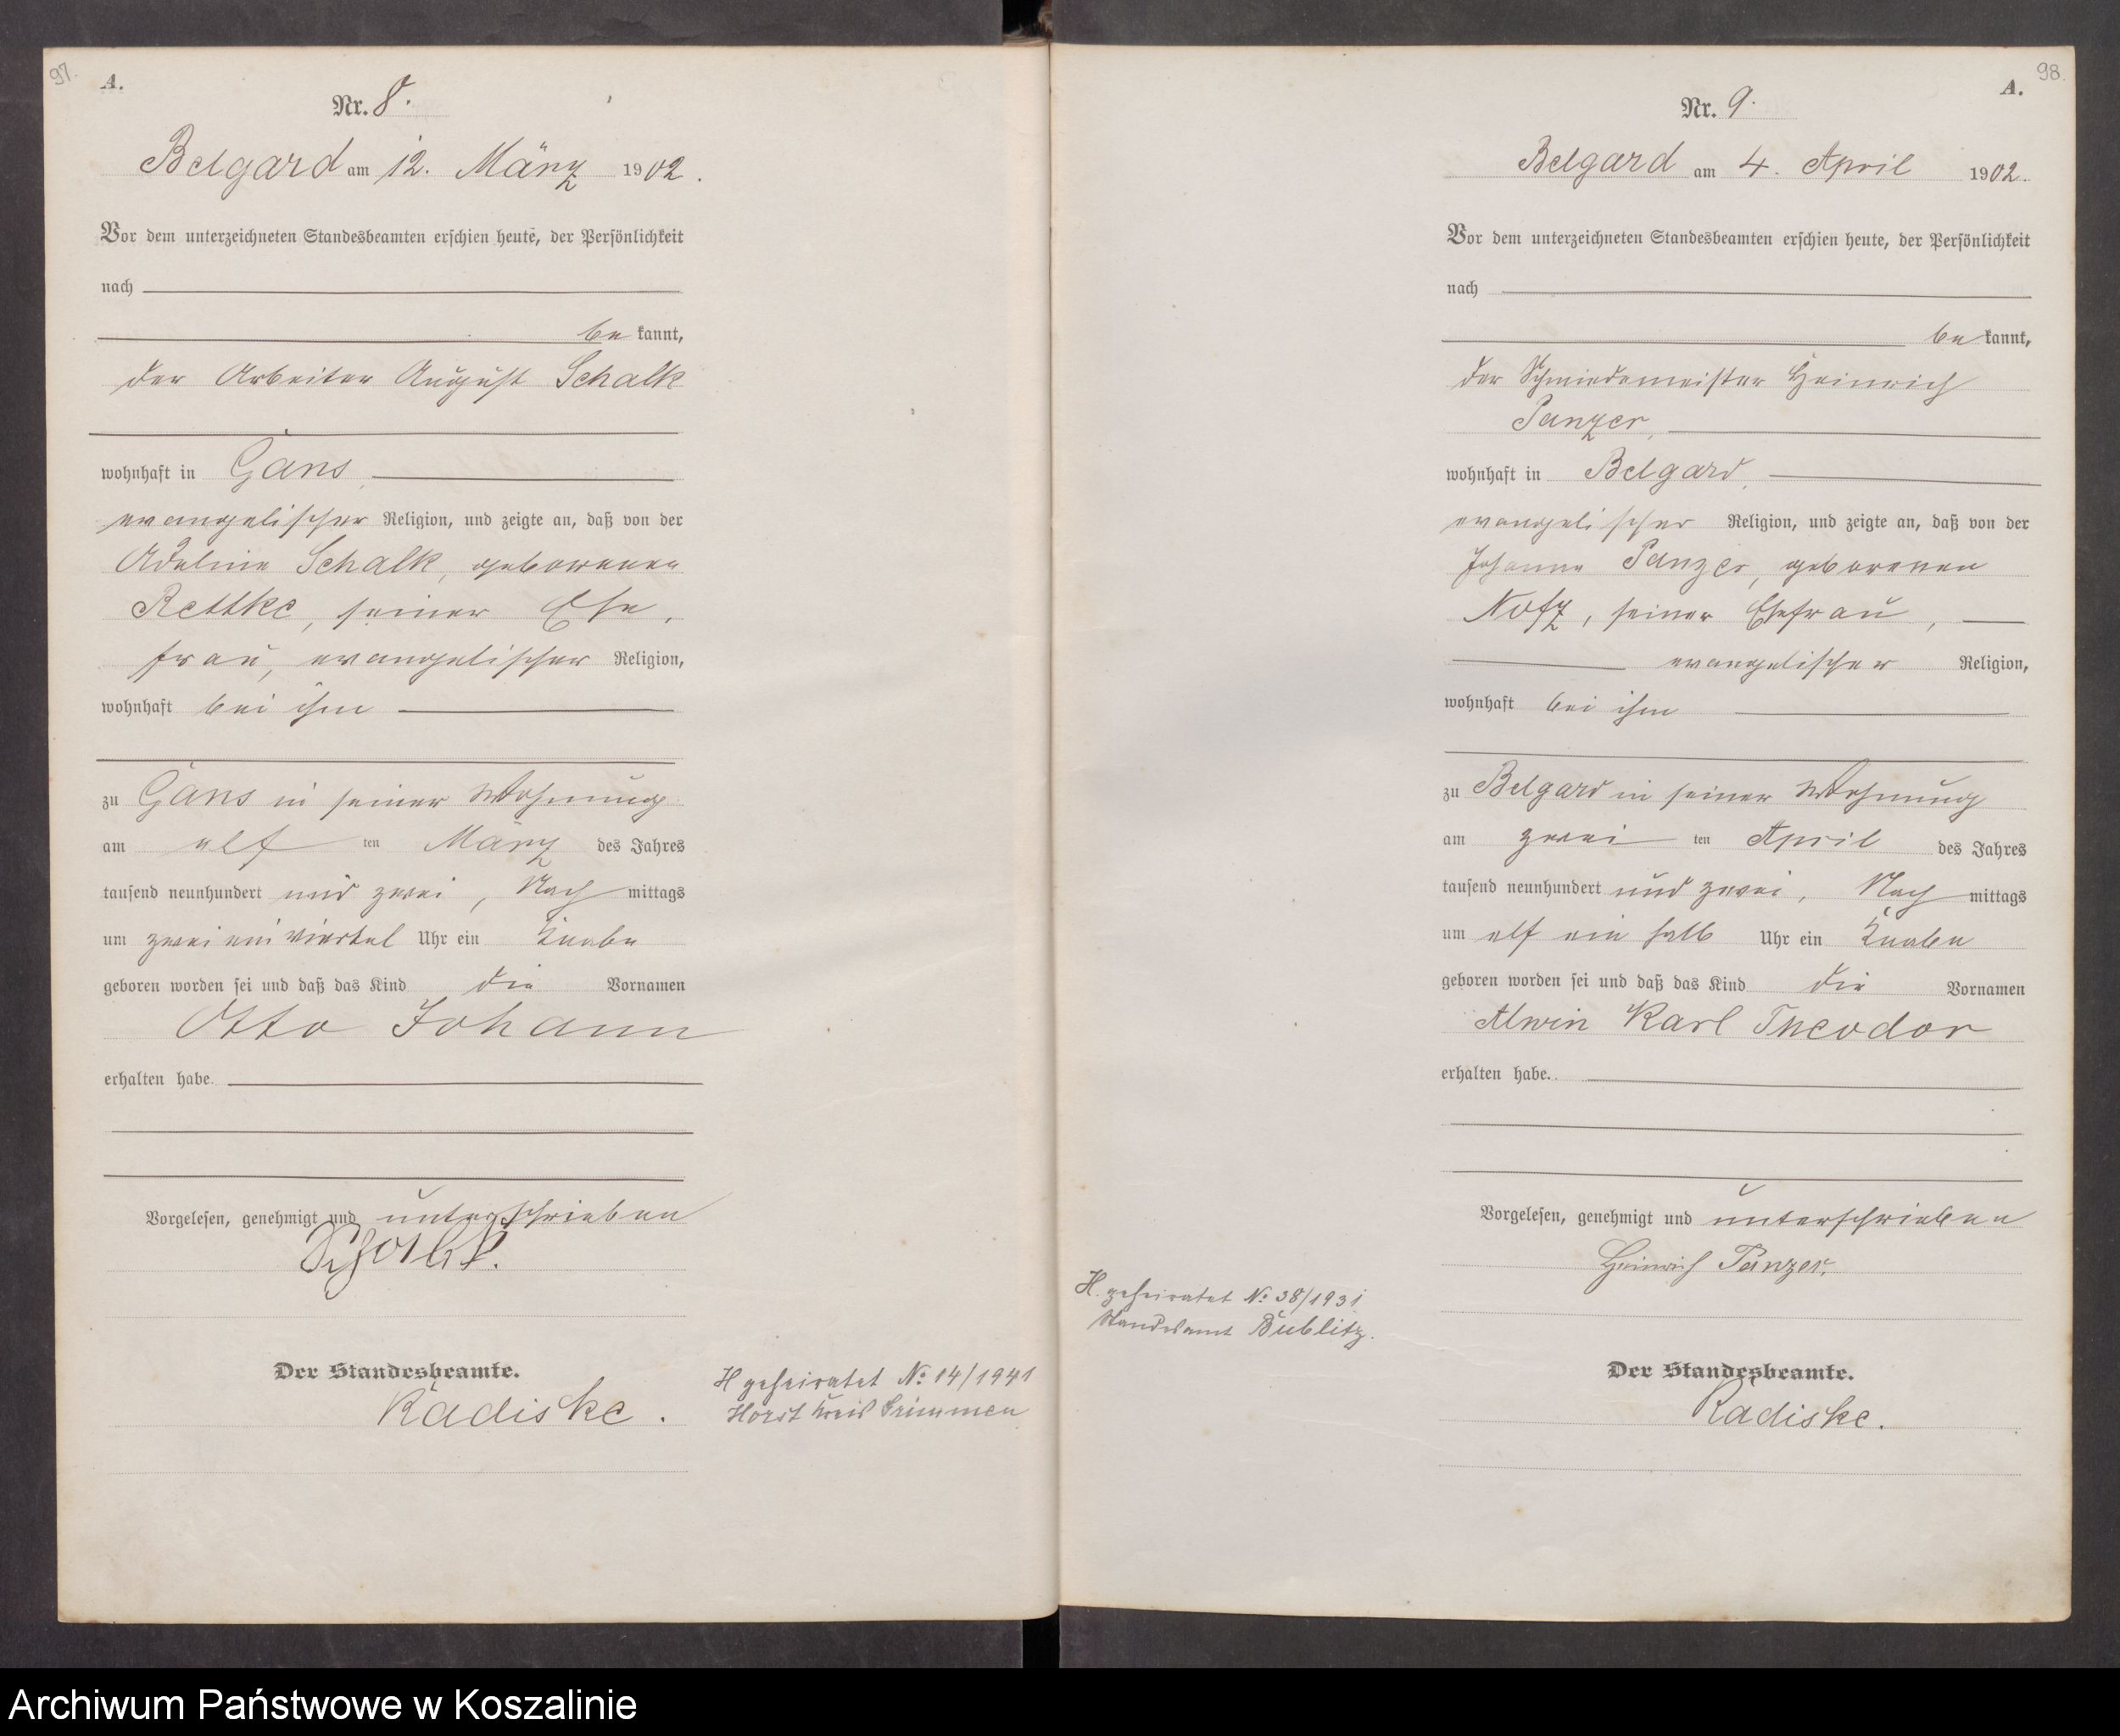 97.
A.
Nr. 8.
Belgard am 12. März 1902.
Vor dem unterzeichneten Standesbeamten erschien heute, der Persönlichkeit
nach
be kannt,
der Arbeiter August Schalk
wohnhaft in Gans,
evangelischer Religion, und zeigte an, daß von der
Adeline Schalk, geborenen
Rettke, seiner Ehe,
frau, evangelischer Religion,
wohnhaft bei ihm
zu Gans in seiner Wohnung
am elf ten März des Jahres
tausend neunhundert und zwei, Nach mittags
um zwei ein viertel Uhr ein Knabe
geboren worden sei und daß das Kind die Vornamen
Otto Johann
erhalten habe.
Vorgelesen, genehmigt und unterschrieben
Der Standesbeamte.
Radiske.
H geheiratet No 14/1941
Horst Kreis Grimmen
98.
A.
Nr. 9.
Belgard am 4. April 1902.
Vor dem unterzeichneten Standesbeamten erschien heute, der Persönlichkeit
nach
be kannt,
der Schmiedemeister Heinrich
Panzer,
wohnhaft in Belgard,
evangelischer Religion, und zeigte an, daß von der
Johanne Panzer, geborenen
seiner Ehefrau,
evangelischer Religion,
wohnhaft bei ihm
zu Belgard in seiner Wohnung
am zwei ten April des Jahres
tausend neunhundert und zwei, Nach mittags
um elf ein halb Uhr ein Knabe
geboren worden sei und daß das Kind die Vornamen
Alwin Karl Theodor
erhalten habe.
Vorgelesen, genehmigt und unterschrieben
Heinrich Panzer.
H. geheiratet No 38/1931
Standesamt Bublitz.
Der Standesbeamte.
Radiske.
Archiwum Państwowe w Koszalinie